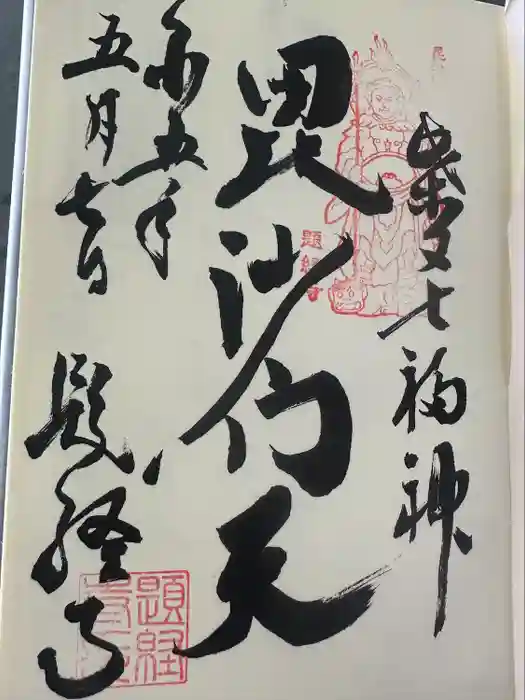 柴又七福神
題経寺
毘沙門天
令五年
五月七日
題経寺
題経